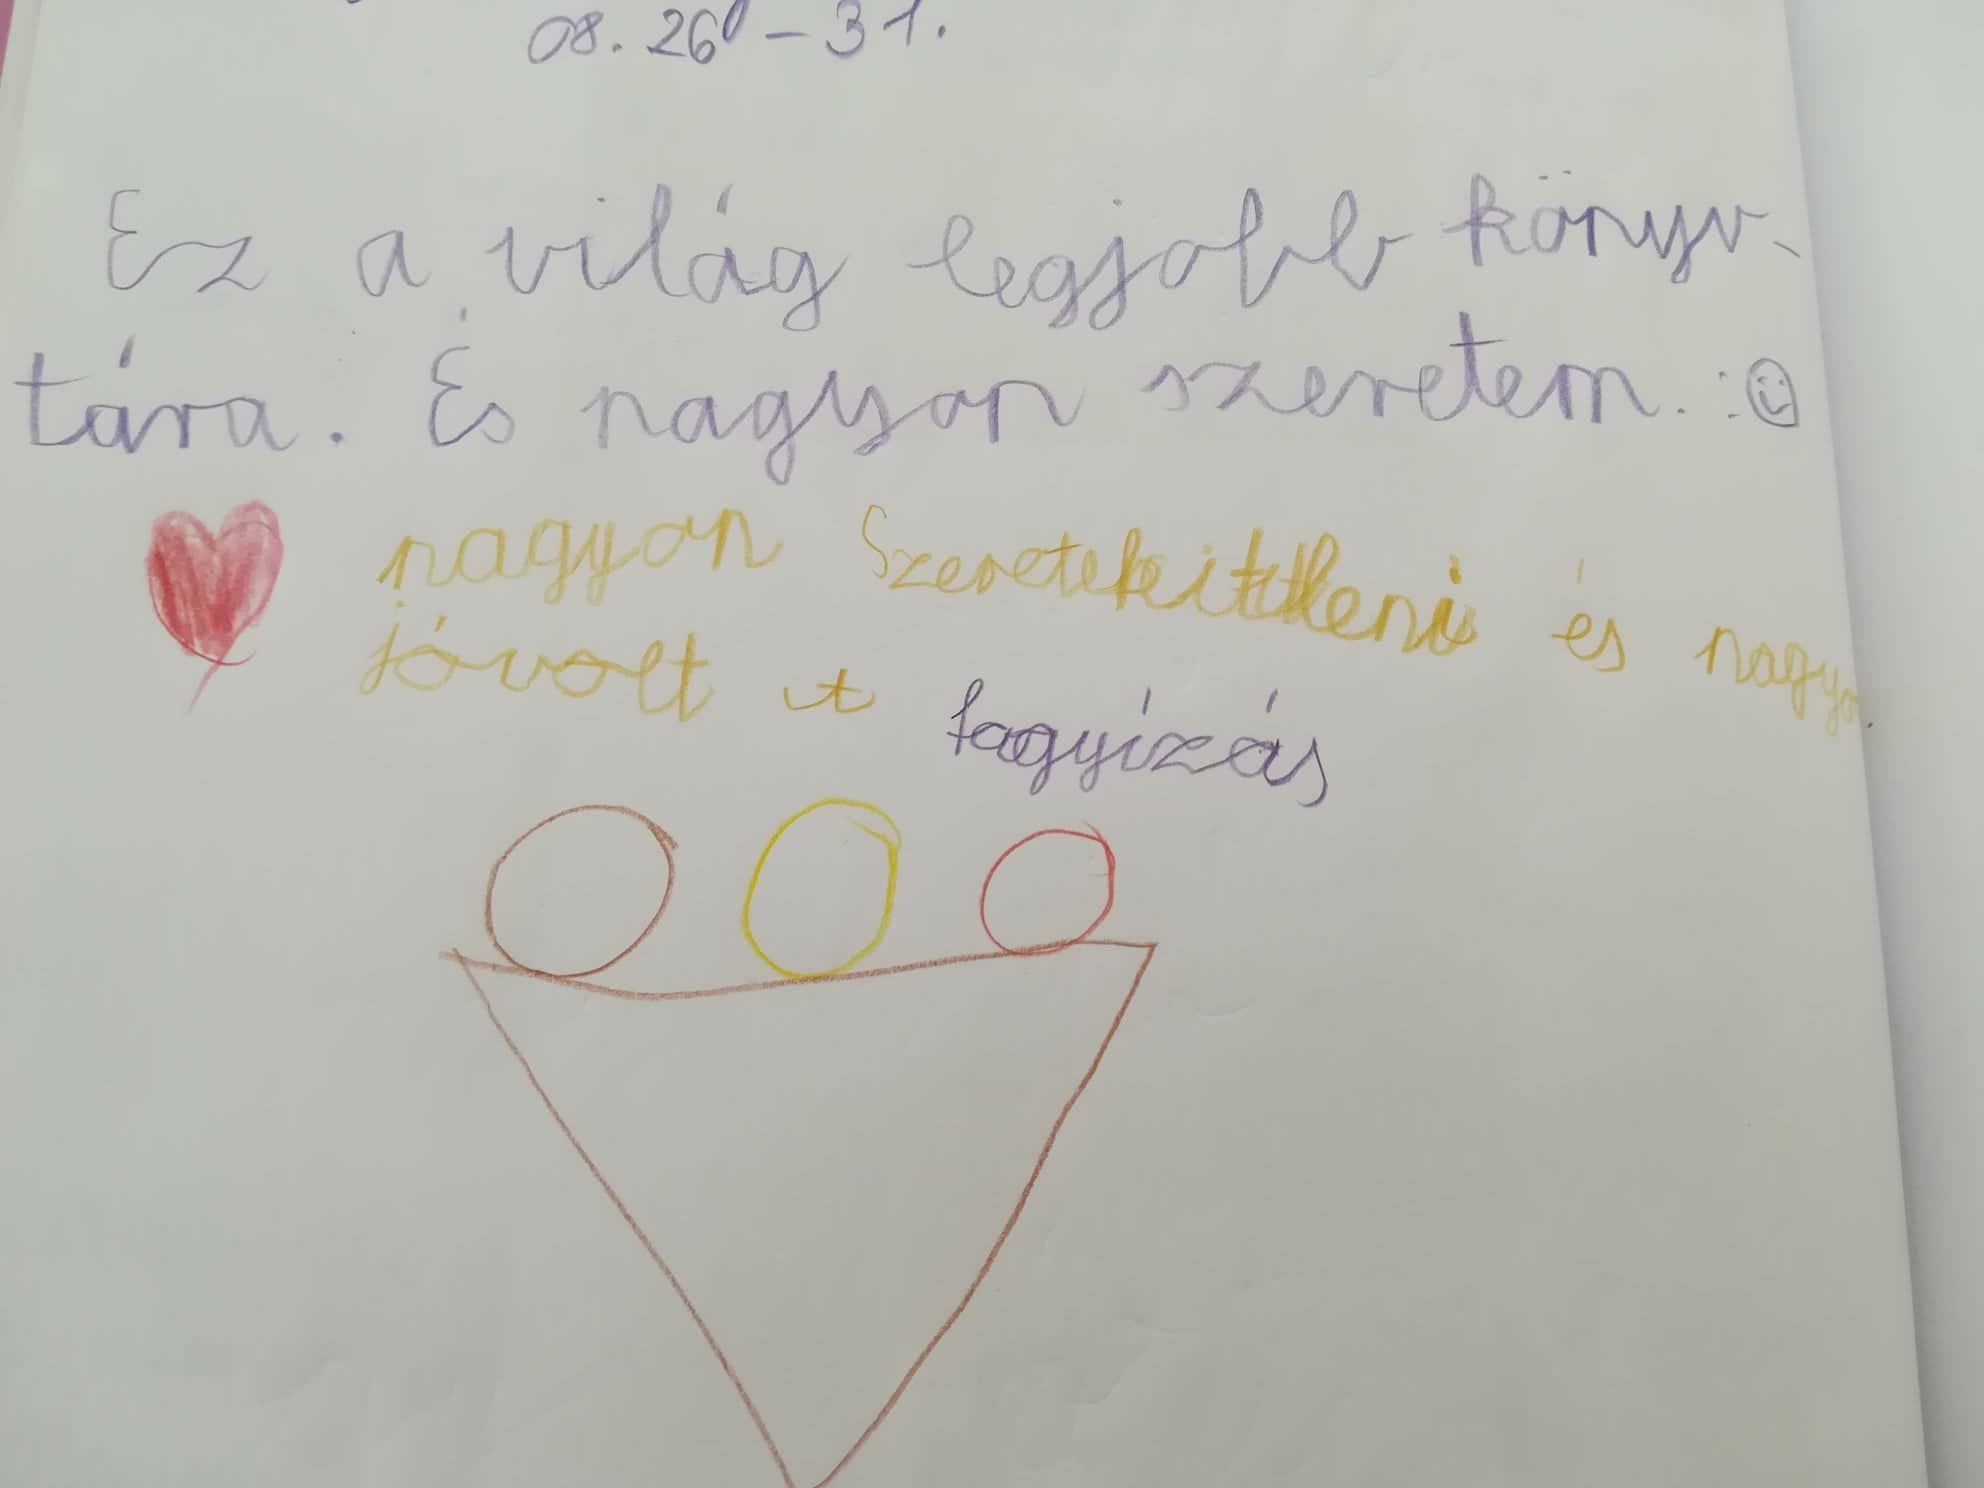 08. 26 - 31.
Ez a világ legjobb könyv-
tára. És nagyon szeretem. :☺
nagyon Szeretek itt lleni és nagyon
jóvolt a fagyizás